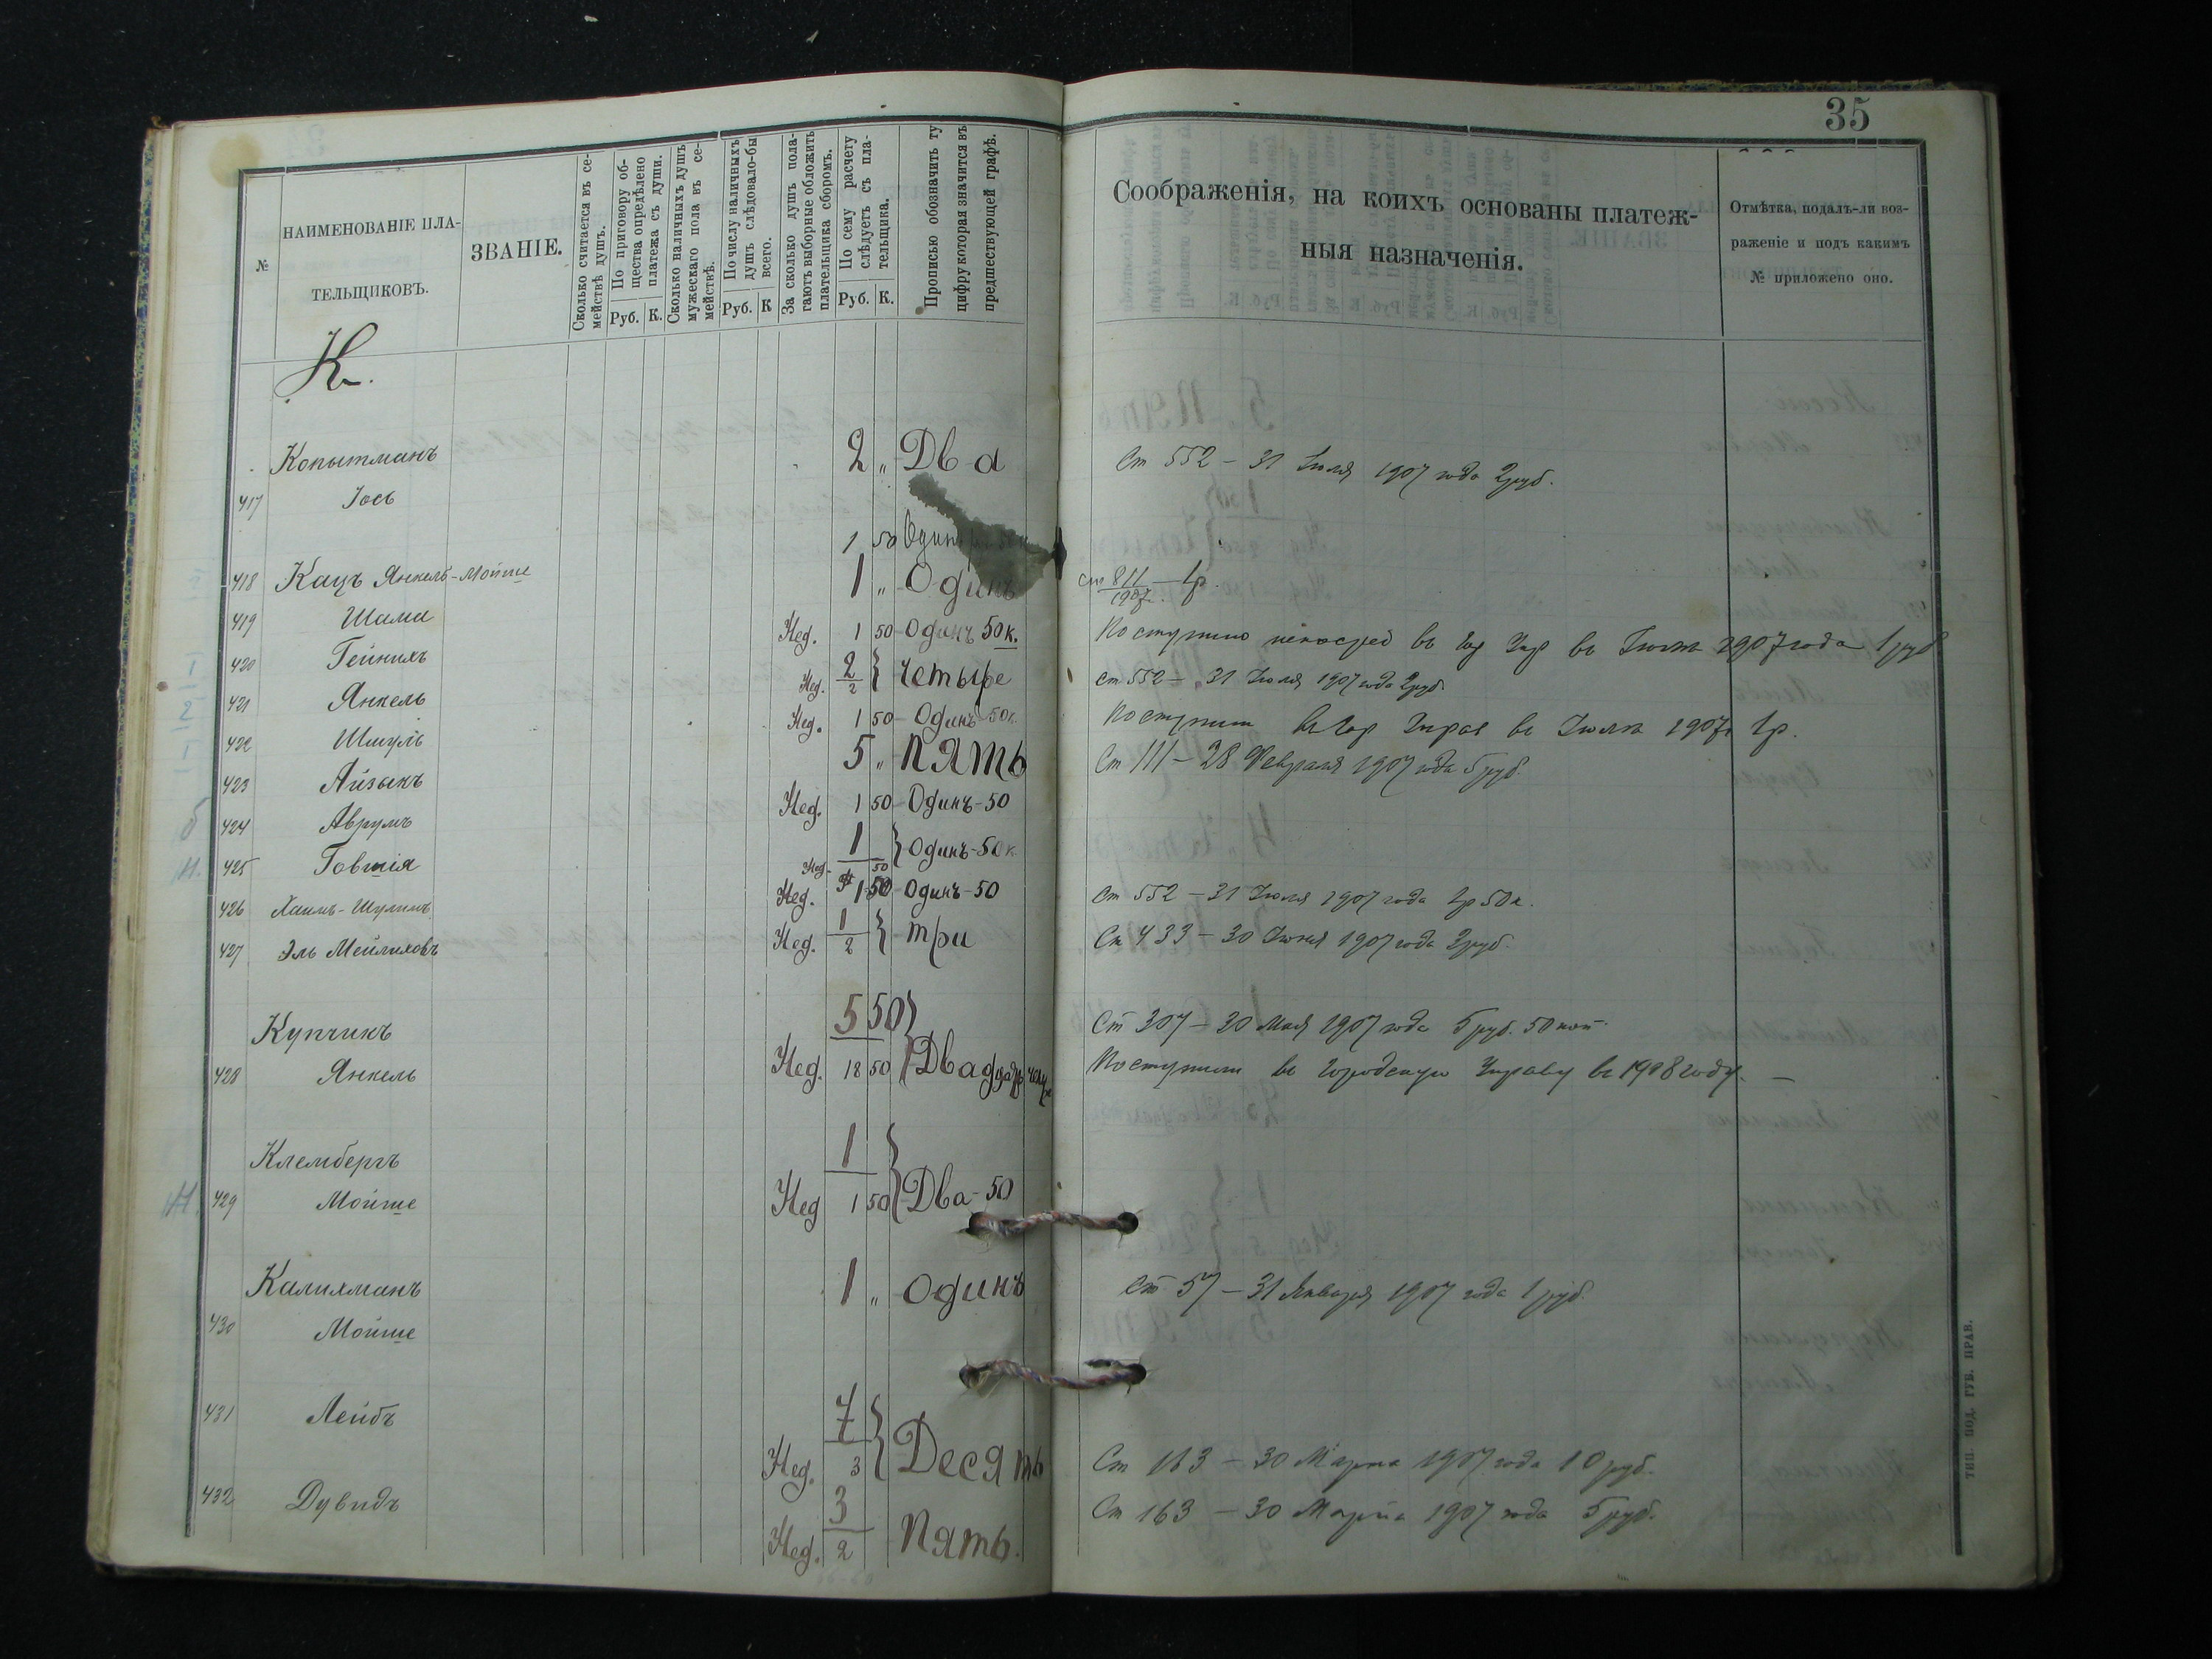 35
№
НАИМЕНОВАНІЕ ПЛА-
ТЕЛЬЩИКОВЪ.
ЗВАНІЕ.
Сколько считается въ се-
мействѣ душъ.
По приговору об-
щества опредѣлено
платежа съ души.
Руб. К.
Сколько наличныхъ душъ
мужескаго пола въ се-
мействѣ.
По числу наличныхъ
душъ слѣдовало-бы
всего.
Руб. К
За сколько душъ пола-
гаютъ выборные обложить
плательщика сборомъ.
По сему расчету
слѣдуетъ съ пла-
тельщика.
Руб. К.
Прописью обозначить ту
цифру которая значится въ
предшествующей графѣ.
Соображенія, на коихъ основаны платеж-
ныя назначенія.
Отмѣтка, подалъ-ли воз-
раженіе и подъ какимъ
№ приложено оно.
К.
Копытманъ 2 " Два Ст 552 – 31 Іюля 1907 года 2 руб.
417 Іось
1 50 Одинъ
418 Кацъ Янкель-Мойше 1 " Одинъ ст 811 – 1 р.
1907
419 Шама Нед. 1 50 – Одинъ 50 к. Поступило въ Гор Упр въ Іюлѣ 1907 года 1 руб
420 Гейнихъ 2
Нед. 2 } четыре ст 552 – 31 Іюля 1907 года 2 руб.
421 Янкель Нед. 1 50 – Одинъ 50 к. Поступили въ Гор Управ въ Іюлѣ 1907 г 1 р.
422 Шмуль 5 " пять Ст 111 – 28 Февраля 1907 года 5 руб.
423 Айзыкъ Нед. 1 50 – Одинъ – 50
424 Аврумъ 1
425 Говшія Нед. 50 } Одинъ – 50 к
426 Хаимъ-Шулимъ Нед. 1 50 – Одинъ – 50 ст 552 – 31 Іюля 1907 года 1 р 50 к.
427 Эль Мейлиховъ 1
Нед. 2 } три Ст 433 – 30 Іюня 1907 года 3 руб.
Купчикъ 5 50 Ст 307 – 30 Мая 1907 года 5 руб. 50 коп.
428 Янкель Нед. 18 50 } Двадцать четыре Поступили въ Городскую Управу въ 1908 году. –
Клембергъ 1
Н. 429 Мойше Нед 1 50 } Два – 50
Калихманъ 1 " Одинъ Ст 57 – 31 Января 1907 года 1 руб.
430 Мойше
431 Лейбъ 7
Нед. 3 } Десять Ст 163 – 30 Марта 1907 года 10 руб.
432 Дувидъ 3
Нед. 2 Пять. Ст 163 – 30 Марта 1907 года 5 руб.
ТИП. ПОД. ГУБ. ПРАВ.